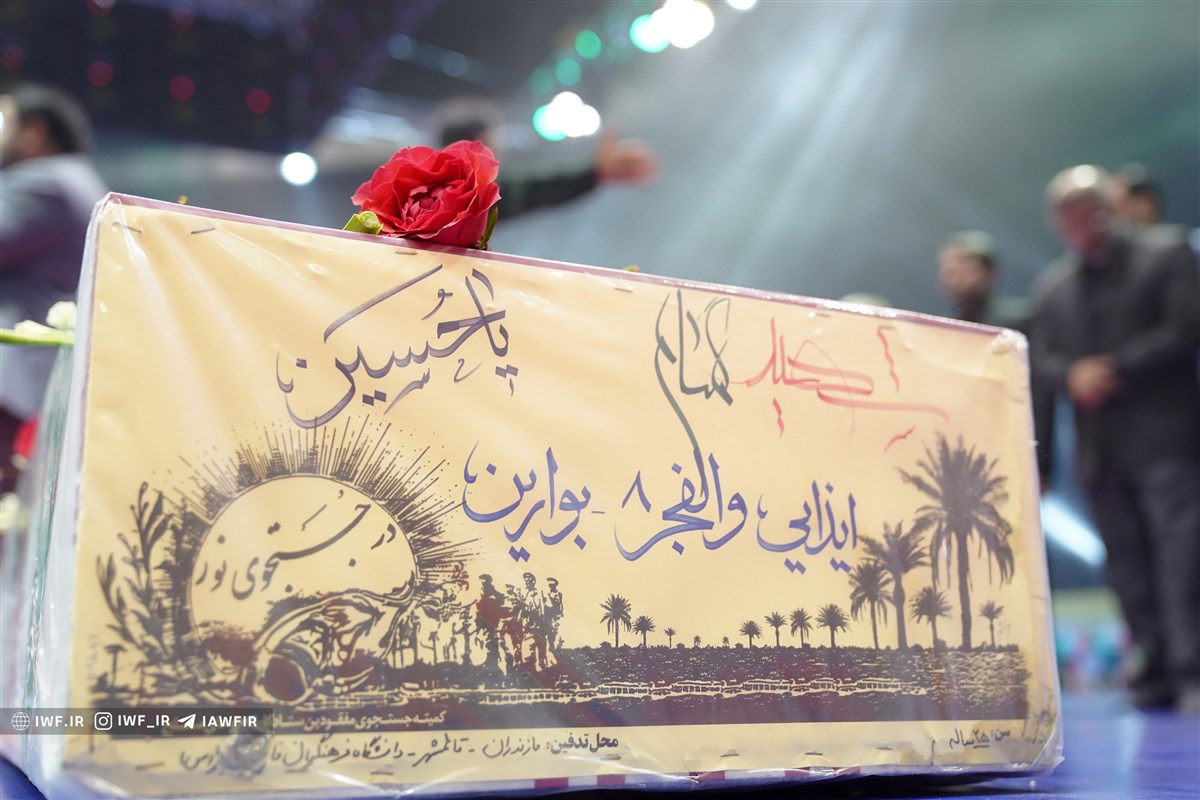 یا حسین
شهید گمنام
ایذایی والفجر ۸ - بوارین
در جستجوی نور
کمیته جستجوی مفقودین ستاد
محل تدفین: مازندران - قائمشهر - دانشگاه فرهنگیان
سن: ۲۵ ساله
IWF.IR IWF_IR IAWFIR